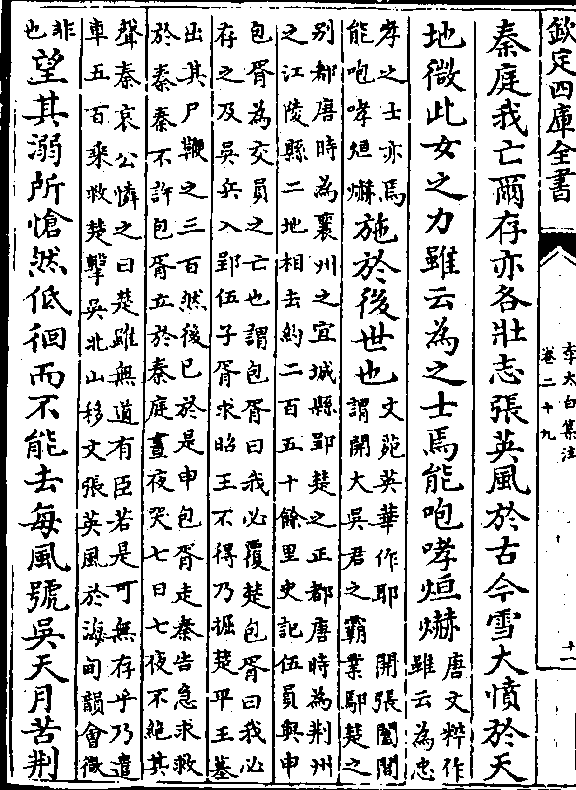 欽定四庫全書
李太白集注
卷二十九
十一
秦庭我亡爾存亦各壯志張英風於古今雪大憤於天
地微此女之力雖云為之士焉能咆哮烜爀
唐文粹作
雖云為忠
孝之士亦焉
能咆哮烜爀
施於後世也
文苑英華作耶 開張闔閭
謂開大吳君之霸業鄢楚之
別都唐時為襄州之宜城縣郢楚之正都唐時為荆州
之江陵縣二地相去約二百五十餘里史記伍員與申
包胥為交員之亡也謂包胥曰我必覆楚包胥曰我必
存之及吳兵入郢伍子胥求昭王不得乃掘楚平王墓
出其尸鞭之三百然後已於是申包胥走秦告急求救
於秦秦不許包胥立於秦庭晝夜哭七日七夜不絕其
聲秦哀公憐之曰楚雖無道有臣若是可無存乎乃遣
車五百乘救楚擊吳北山移文張英風於海甸韻會微
非
也
望其溺所愴然低徊而不能去每風號吳天月苦荆